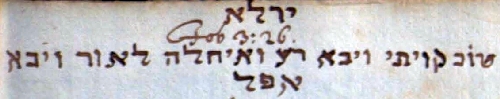 ירלא
Job 3: 26.
טוב קויתי ויבא רע ואיחלה לאור ויבא
אפל